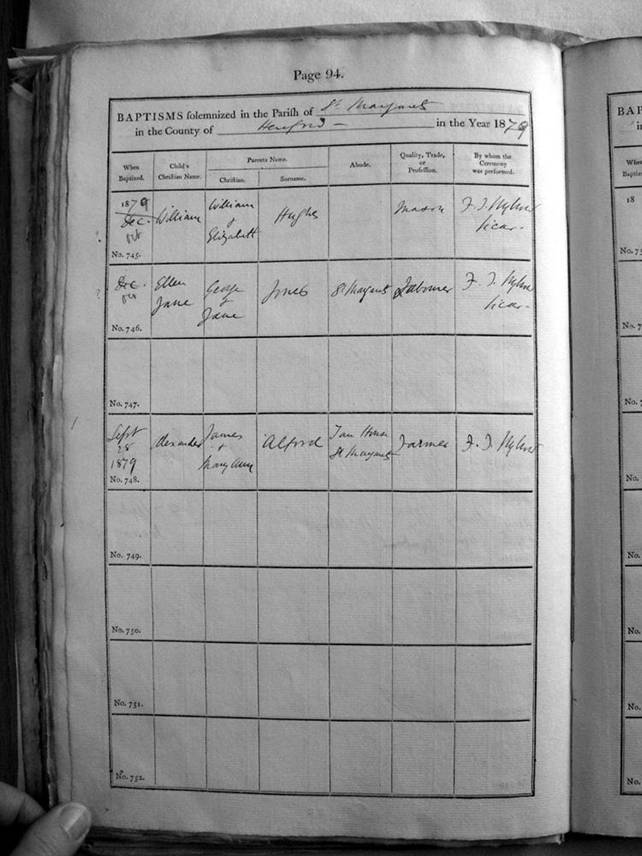 Page 94.
BAPTISMS solemnized in the Parish of St. Margarets
in the County of Hereford — in the Year 1879
When Baptized.
Child's Christian Name.
Parents Name.
Christian.
Surname.
Abode.
Quality, Trade, or Profession.
By whom the Ceremony was performed.
1879
Dec.
William
William
&
Elizabeth
Hughes
Mason
F. T.
Vicar.
No. 745.
Dec.
Ellen
Jane
George
&
Jane
Jones
St Margarets
Labourer
F. T.
Vicar.
No. 746.
No. 747.
Sept
28
1879
Alexander
James
&
Mary Ann
Alford
Tan House
St Margarets
Farmer
F. T.
No. 748.
No. 749.
No. 750.
No. 751.
No. 752.
BA
When
Baptized
18
No. 75
No. 7
No. 7
No.
No.
No.
No.
No.